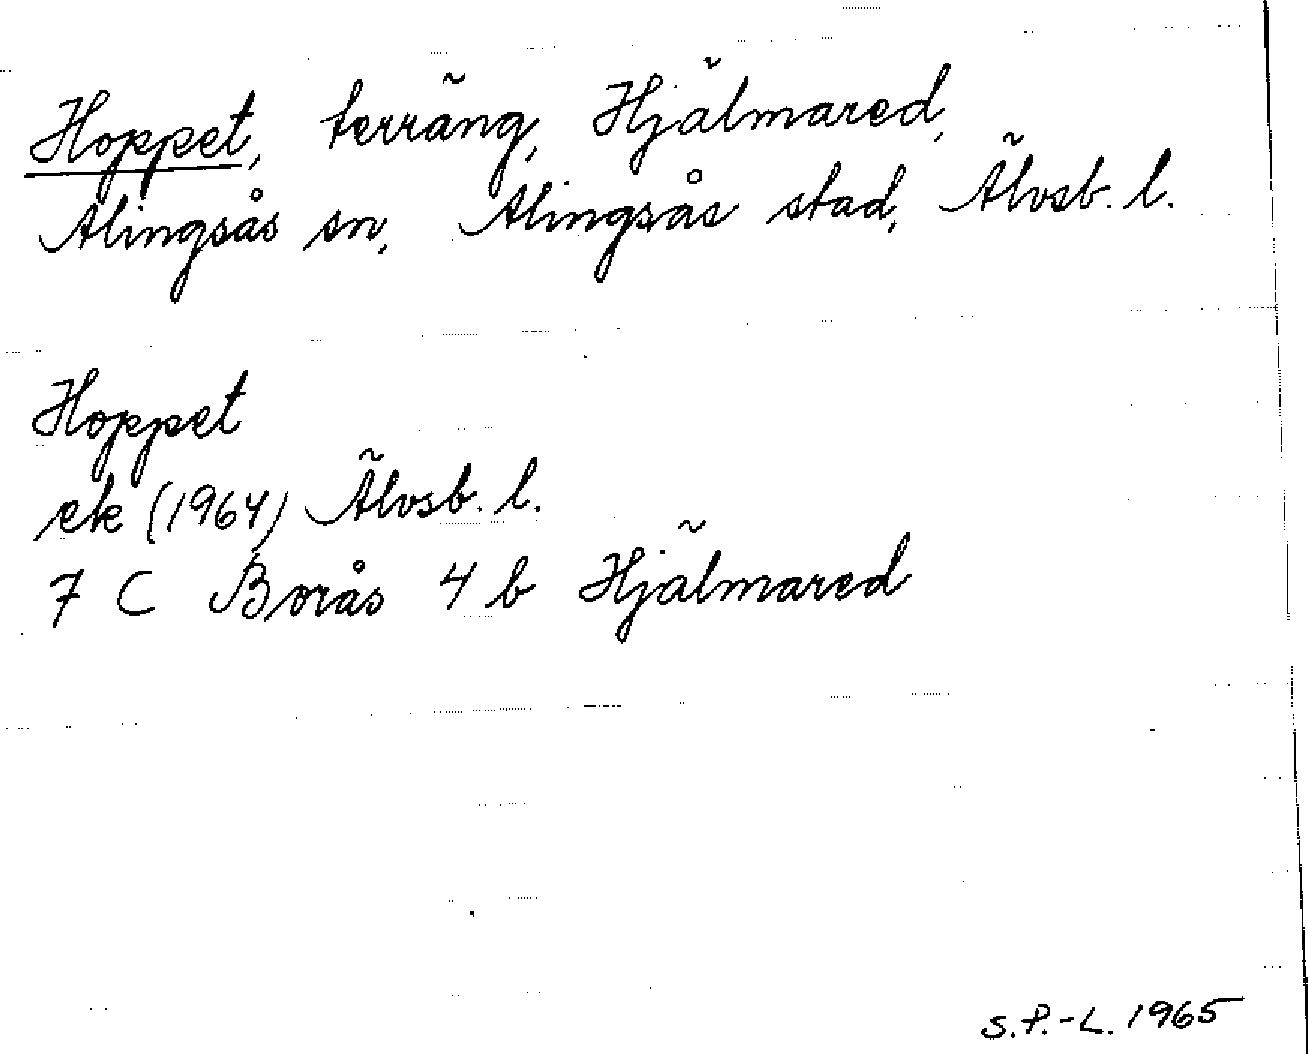 Hoppet, terräng, Hjälmared,
Alingsås sn, Alingsås stad, Älvsb. l.
Hoppet
ek (1964) Älvsb. l.
7 C Borås 4 b Hjälmared
S.P.-L. 1965